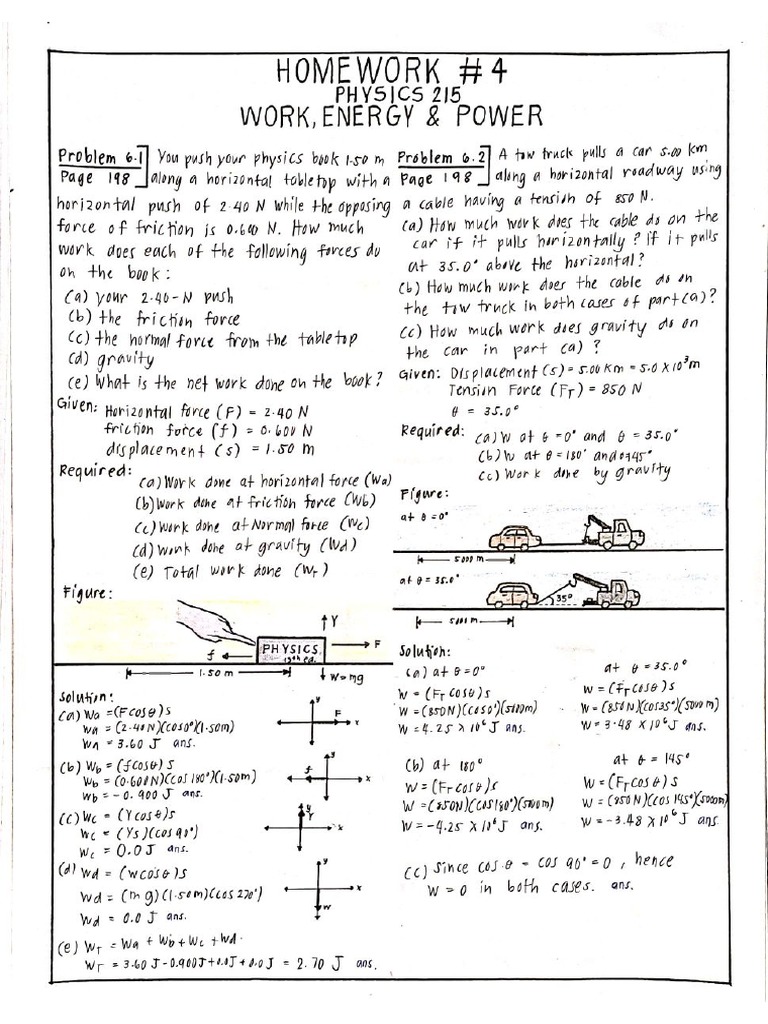 HOMEWORK #4
PHYSICS 215
WORK, ENERGY & POWER
Problem 6.1 You push your physics book 1.50 m
Page 198 along a horizontal tabletop with a
horizontal push of 2.40 N while the opposing
force of friction is 0.600 N. How much
work does each of the following forces do
on the book:
(a) your 2.40-N push
(b) the friction force
(c) the normal force from the tabletop
(d) gravity
(e) What is the net work done on the book?
Given: Horizontal force (F) = 2.40 N
friction force (f) = 0.600 N
displacement (s) = 1.50 m
Required:
(a) Work done at horizontal force (Wa)
(b) Work done at friction force (Wb)
(c) Work done at Normal force (Wc)
(d) Work done at gravity (Wd)
(e) Total work done (WT)
Figure:
Y
F
f
PHYSICS
13th ed.
1.50 m
W=mg
Solution:
(a) Wa = (Fcosθ)s
Wa = (2.40N)(cos0°)(1.50m)
Wa = 3.60 J ans.
y
F
x
(b) Wb = (fcosθ)s
Wb = (0.600N)(cos 180°)(1.50m)
Wb = -0.900 J ans.
y
f
x
(c) Wc = (Ycosθ)s
Wc = (Ys)(cos 90°)
Wc = 0.0 J ans.
y
Y
x
(d) Wd = (wcosθ)s
Wd = (mg)(1.50m)(cos 270°)
Wd = 0.0 J ans.
y
x
w
(e) WT = Wa + Wb + Wc + Wd
WT = 3.60 J - 0.900J + 0.0J + 0.0 J = 2.70 J ans.
Problem 6.2 A tow truck pulls a car 5.00 km
Page 198 along a horizontal roadway using
a cable having a tension of 850 N.
(a) How much work does the cable do on the
car if it pulls horizontally? if it pulls
at 35.0° above the horizontal?
(b) How much work does the cable do on
the tow truck in both cases of part (a)?
(c) How much work does gravity do on
the car in part (a)?
Given: Displacement (s) = 5.00 km = 5.0 x 10³ m
Tension Force (FT) = 850 N
θ = 35.0°
Required: (a) W at θ = 0° and θ = 35.0°
(b) W at θ = 180° and 145°
(c) Work done by gravity
Figure:
at θ = 0°
5000 m
at θ = 35.0°
35°
5000 m
Solution:
(a) at θ = 0°
W = (FT cosθ)s
W = (850N)(cos0°)(5000m)
W = 4.25 x 10⁶ J ans.
at θ = 35.0°
W = (FT cosθ)s
W = (850N)(cos35°)(5000 m)
W = 3.48 x 10⁶ J ans.
(b) at 180°
W = (FT cosθ)s
W = (850N)(cos 180°)(5000m)
W = -4.25 x 10⁶ J ans.
at θ = 145°
W = (FT cosθ)s
W = (850N)(cos 145°)(5000m)
W = -3.48 x 10⁶ J ans.
(c) Since cos θ = cos 90° = 0, hence
W = 0 in both cases. ans.